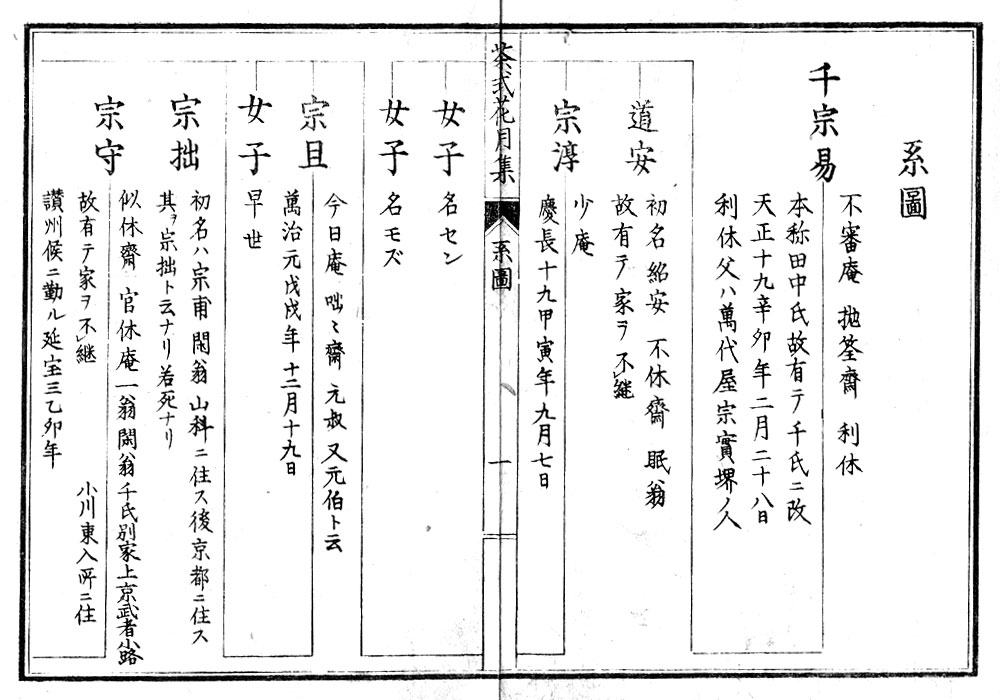 系圖
千宗易
不審庵 抛筌齋 利休
本称田中氏故有テ千氏ニ改
天正十九辛卯年二月二十八日
利休父ハ萬代屋宗實堺ノ人
道安
初名紹安 不休齋 眠翁
故有テ家ヲ不継
宗淳
少庵
慶長十九甲寅年九月七日
茶式花月集
系圖
一
女子
名セン
女子
名モズ
宗旦
今日庵 咄々齋 元叔 又元伯ト云
萬治元戊戌年十二月十九日
女子
早世
宗拙
初名ハ宗甫 閑翁 山科ニ住ス後京都ニ住ス
其ヲ宗拙ト云ナリ若死ナリ
宗守
似休齋 官休庵一翁閑翁千氏別家上京武者小路
故有テ家ヲ不継 小川東入所ニ住
讃州候ニ勤ル延宝三乙卯年